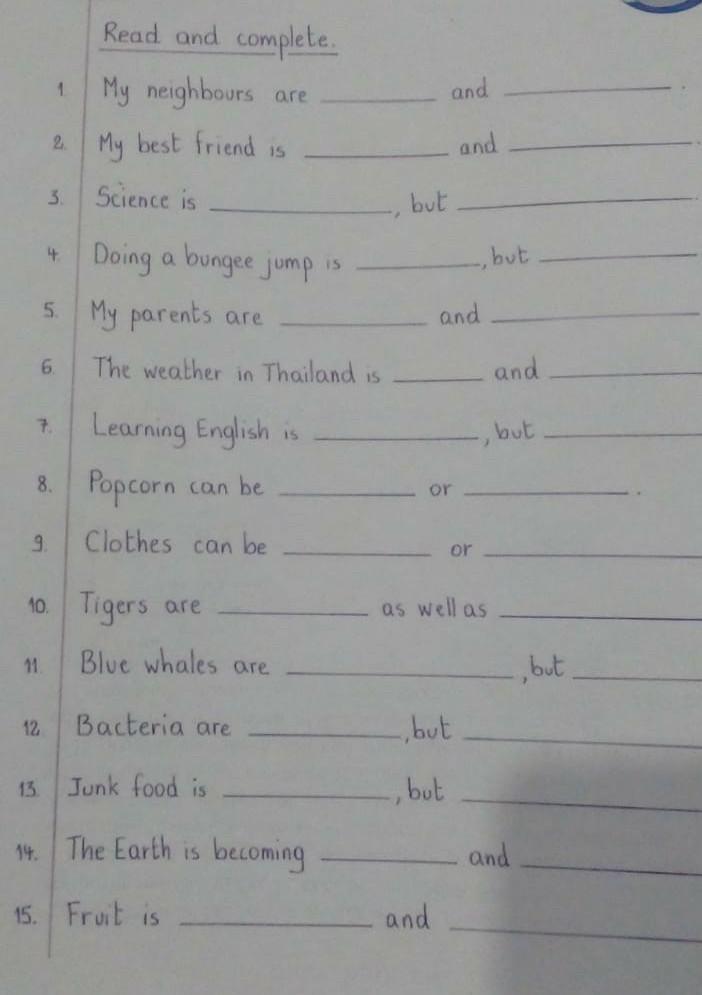 Read and complete.
1. My neighbours are ________ and ________.
2. My best friend is ________ and ________.
3. Science is ________, but ________.
4. Doing a bungee jump is ________, but ________
5. My parents are ________ and ________
6. The weather in Thailand is ________ and ________
7. Learning English is ________, but ________
8. Popcorn can be ________ or ________.
9. Clothes can be ________ or ________
10. Tigers are ________ as well as ________
11. Blue whales are ________, but ________
12. Bacteria are ________, but ________
13. Junk food is ________, but ________
14. The Earth is becoming ________ and ________
15. Fruit is ________ and ________